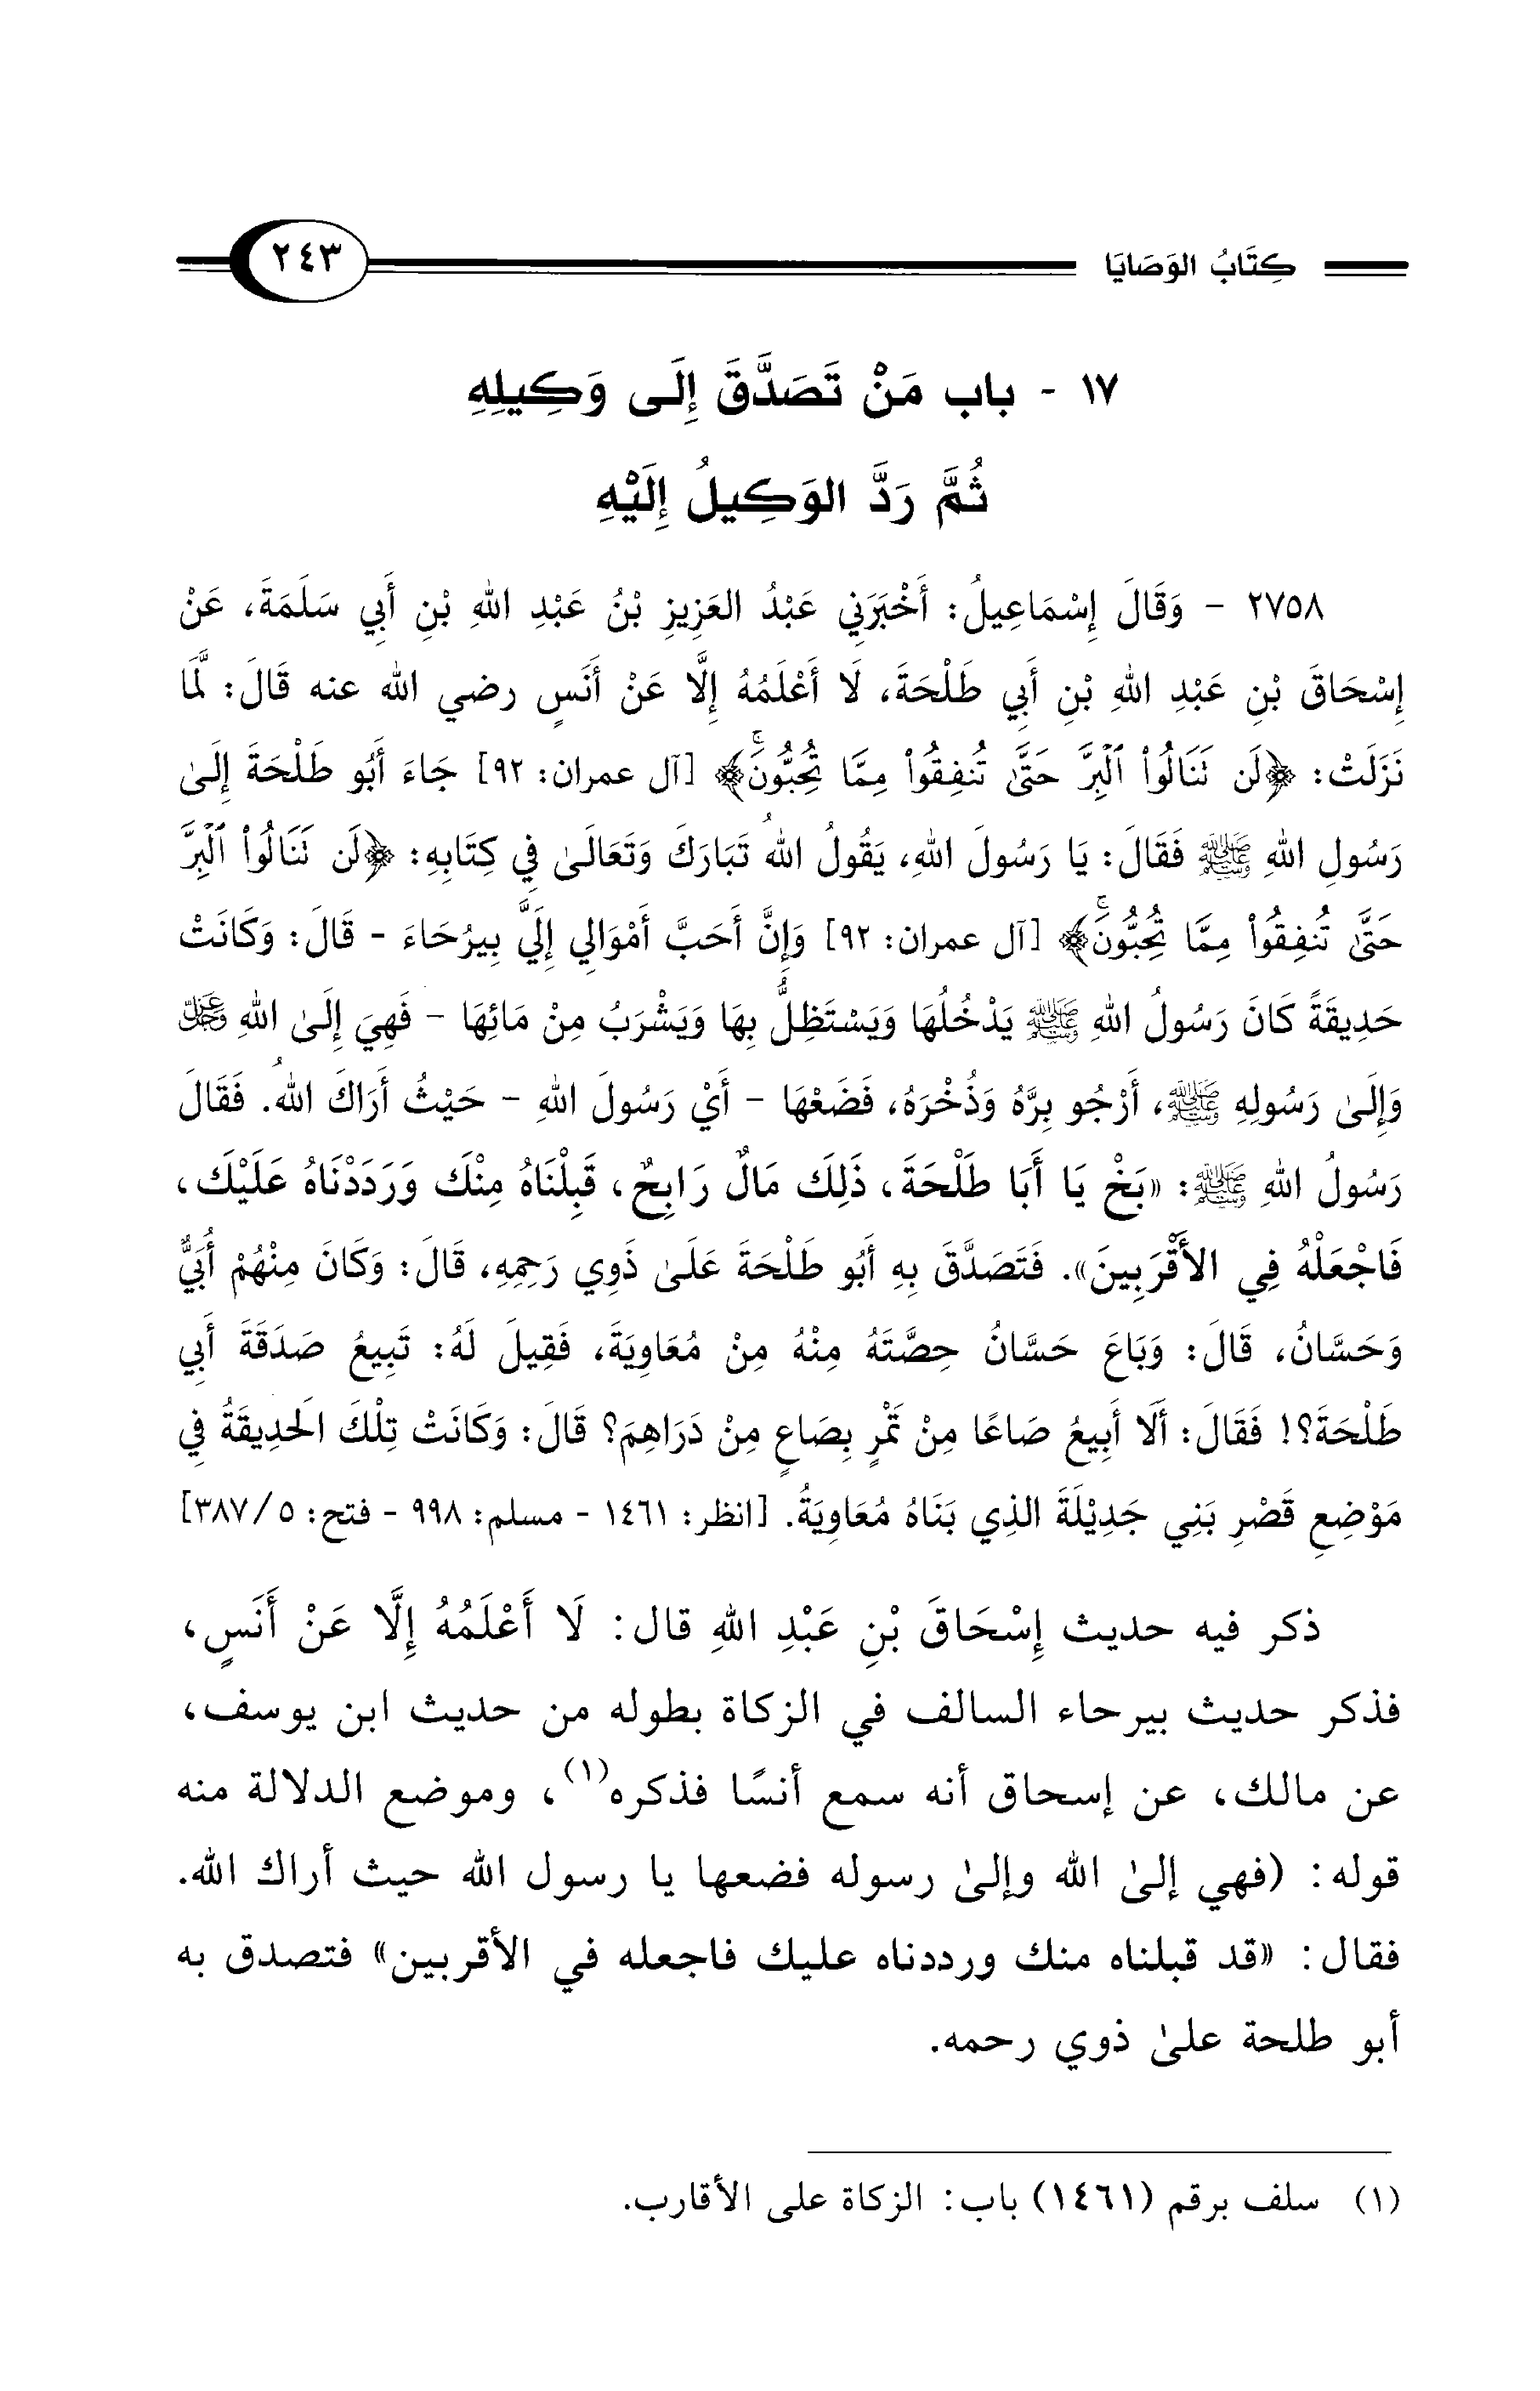 كِتَابُ الوَصَايَا
٢٤٣
١٧ - باب مَنْ تَصَدَّقَ إِلَى وَكِيلِهِ
ثُمَّ رَدَّ الوَكِيلُ إِلَيْهِ
٢٧٥٨ - وَقَالَ إِسْمَاعِيلُ: أَخْبَرَنِي عَبْدُ العَزِيزِ بْنُ عَبْدِ اللهِ بْنِ أَبِي سَلَمَةَ، عَنْ
إِسْحَاقَ بْنِ عَبْدِ اللهِ بْنِ أَبِي طَلْحَةَ، لَا أَعْلَمُهُ إِلَّا عَنْ أَنَسٍ رضي الله عنه قَالَ: لَمَّا
نَزَلَتْ: ﴿لَن تَنَالُواْ ٱلْبِرَّ حَتَّىٰ تُنفِقُواْ مِمَّا تُحِبُّونَۚ﴾ [آل عمران: ٩٢] جَاءَ أَبُو طَلْحَةَ إِلَىٰ
رَسُولِ اللهِ ﷺ فَقَالَ: يَا رَسُولَ اللهِ، يَقُولُ اللهُ تَبَارَكَ وَتَعَالَىٰ فِي كِتَابِهِ: ﴿لَن تَنَالُواْ ٱلْبِرَّ
حَتَّىٰ تُنفِقُواْ مِمَّا تُحِبُّونَۚ﴾ [آل عمران: ٩٢] وَإِنَّ أَحَبَّ أَمْوَالِي إِلَيَّ بِيرُحَاءَ - قَالَ: وَكَانَتْ
حَدِيقَةً كَانَ رَسُولُ اللهِ ﷺ يَدْخُلُهَا وَيَسْتَظِلُّ بِهَا وَيَشْرَبُ مِنْ مَائِهَا - فَهِيَ إِلَىٰ اللهِ عَزَّ وَجَلَّ
وَإِلَىٰ رَسُولِهِ ﷺ، أَرْجُو بِرَّهُ وَذُخْرَهُ، فَضَعْهَا - أَيْ رَسُولَ اللهِ - حَيْثُ أَرَاكَ اللهُ. فَقَالَ
رَسُولُ اللهِ ﷺ: «بَخْ يَا أَبَا طَلْحَةَ، ذَلِكَ مَالٌ رَابِحٌ، قَبِلْنَاهُ مِنْكَ وَرَدَدْنَاهُ عَلَيْكَ،
فَاجْعَلْهُ فِي الأَقْرَبِينَ». فَتَصَدَّقَ بِهِ أَبُو طَلْحَةَ عَلَىٰ ذَوِي رَحِمِهِ، قَالَ: وَكَانَ مِنْهُمْ أُبَيٌّ
وَحَسَّانُ، قَالَ: وَبَاعَ حَسَّانُ حِصَّتَهُ مِنْهُ مِنْ مُعَاوِيَةَ، فَقِيلَ لَهُ: تَبِيعُ صَدَقَةَ أَبِي
طَلْحَةَ؟! فَقَالَ: أَلَا أَبِيعُ صَاعًا مِنْ تَمْرٍ بِصَاعٍ مِنْ دَرَاهِمَ؟ قَالَ: وَكَانَتْ تِلْكَ الَحدِيقَةُ فِي
مَوْضِعِ قَصْرِ بَنِي جَدِيْلَةَ الذِي بَنَاهُ مُعَاوِيَةُ. [انظر: ١٤٦١ - مسلم: ٩٩٨ - فتح: ٥/ ٣٨٧]
ذكر فيه حديث إِسْحَاقَ بْنِ عَبْدِ اللهِ قال: لَا أَعْلَمُهُ إِلَّا عَنْ أَنَسٍ،
فذكر حديث بيرحاء السالف في الزكاة بطوله من حديث ابن يوسف،
عن مالك، عن إسحاق أنه سمع أنسًا فذكره(١)، وموضع الدلالة منه
قوله: (فهي إلىٰ الله وإلىٰ رسوله فضعها يا رسول الله حيث أراك الله.
فقال: «قد قبلناه منك ورددناه عليك فاجعله في الأقربين» فتصدق به
أبو طلحة علىٰ ذوي رحمه.
(١) سلف برقم (١٤٦١) باب: الزكاة على الأقارب.